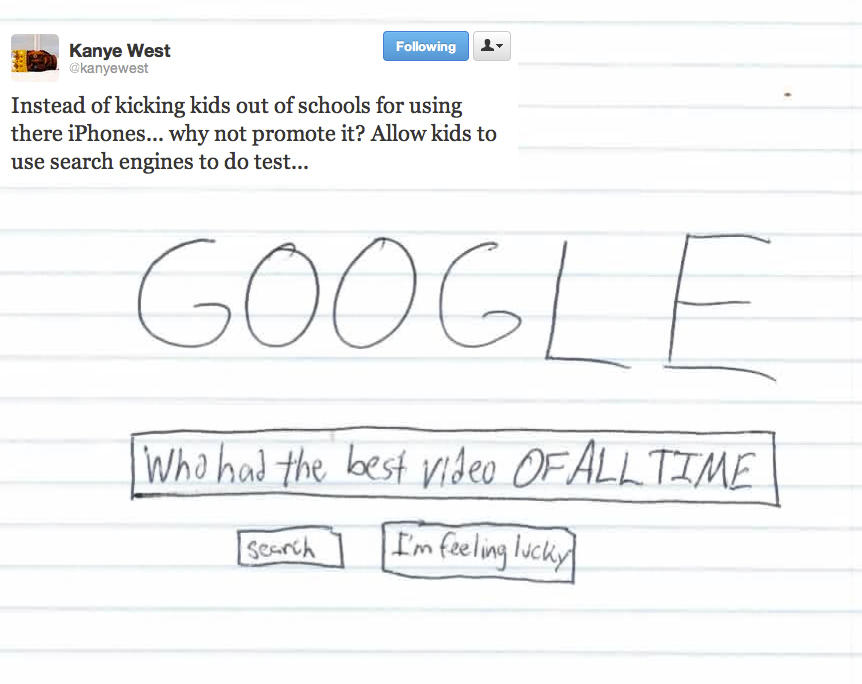 Kanye West
@kanyewest
Following
Instead of kicking kids out of schools for using
there iPhones... why not promote it? Allow kids to
use search engines to do test...
GOOGLE
Who had the best video OF ALL TIME
search
I'm feeling lucky